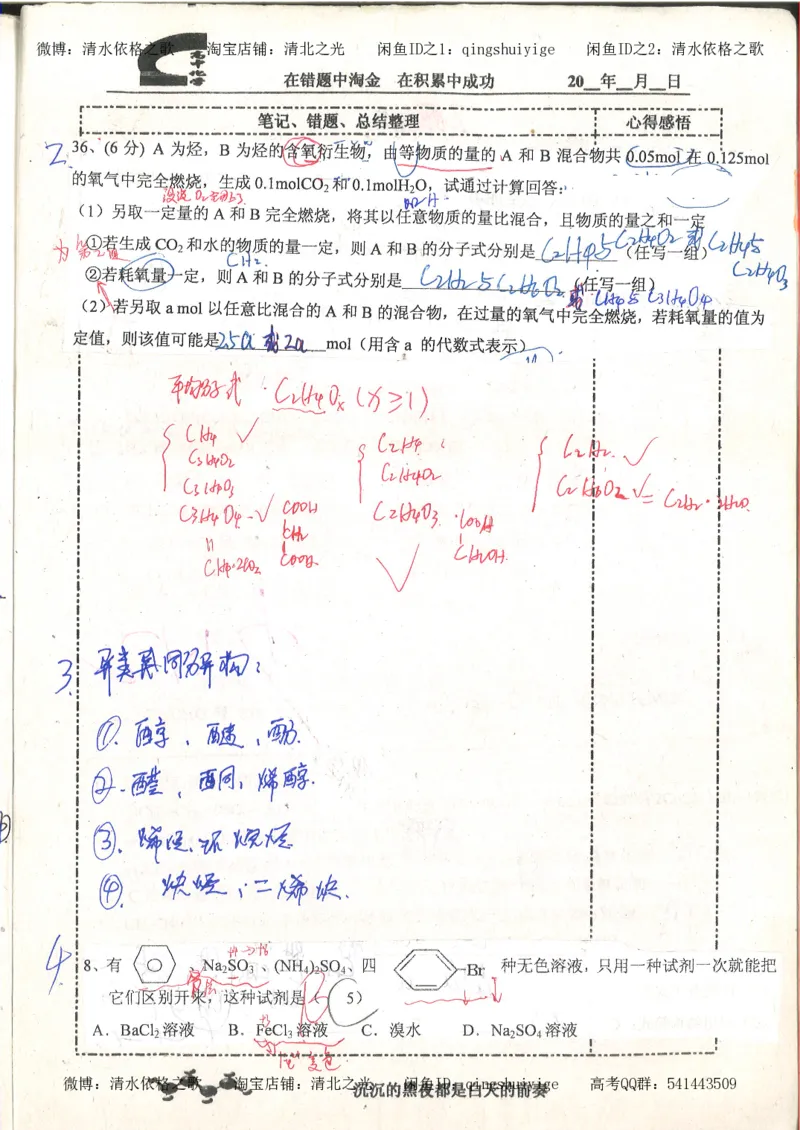 微博：清水依格之歌 淘宝店铺：清北之光 闲鱼ID之1：qingshuiyige 闲鱼ID之2：清水依格之歌
高中化学
在错题中淘金 在积累中成功 20__年__月__日
笔记、错题、总结整理 心得感悟
2.
36、(6 分) A 为烃，B 为烃的含氧衍生物，由等物质的量的 A 和 B 混合物共 0.05mol 在 0.125mol
的氧气中完全燃烧，生成 0.1molCO₂ 和 0.1molH₂O，试通过计算回答：
（1）另取一定量的 A 和 B 完全燃烧，将其以任意物质的量比混合，且物质的量之和一定
①若生成 CO₂ 和水的物质的量一定，则 A 和 B 的分子式分别是 C₂H₄与C₂H₄O₂ 或 C₂H₄与 （任写一组）
C₂H₄O₃
②若耗氧量一定，则 A 和 B 的分子式分别是 C₂H₂与C₂H₆O₂ （任写一组）
或 CH₄与C₃H₄O₄
（2）若另取 a mol 以任意比混合的 A 和 B 的混合物，在过量的氧气中完全燃烧，若耗氧量的值为
定值，则该值可能是 2.5a 或 2a mol（用含 a 的代数式表示）
平均分子式：C₂H₄Oₓ (x≥1)
CH₄ ✓ C₂H₄ C₂H₂ ✓
C₃H₄O₂ C₂H₄O₂ C₂H₆O₂ ✓ = C₂H₂·2H₂O
C₃H₄O₃ C₂H₄O₃
C₃H₄O₄ ✓ COOH COOH
CH₂ CH₂OH
CH₄·2CO₂ COOH
3. 异类异同分异构：
①. 醇、醚、酚.
②. 醛、酮、烯醇.
③. 烯烃、环烷烃
④. 炔烃、二烯炔.
4
8、有 Na₂SO₃、(NH₄)₂SO₄、四 Br 种无色溶液，只用一种试剂一次就能把
它们区别开来，这种试剂是 B 5）
A．BaCl₂ 溶液 B．FeCl₃ 溶液 C．溴水 D．Na₂SO₄ 溶液
变色
微博：清水依格之歌 淘宝店铺：清北之光 闲鱼ID：qingshuiyige 高考QQ群：541443509
沉沉的黑夜都是白天的前奏